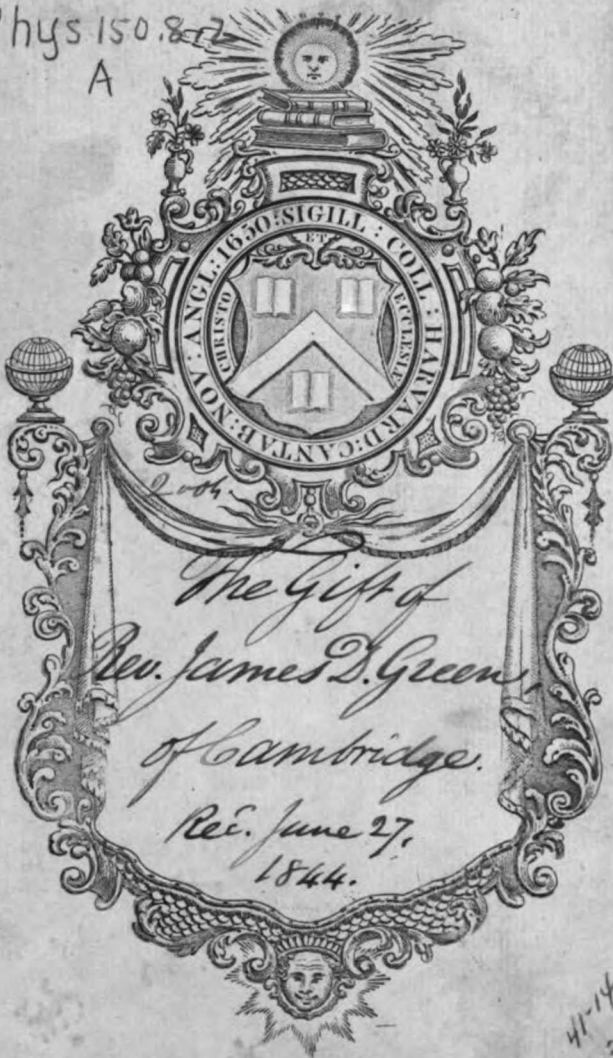 Phys 150.8
A
SIGILL : COLL : HARVARD : CANTAB : NOV : ANGL : 1650 :
ET
CHRISTO
ECCLESIÆ
The Gift of
Rev. James D. Green,
of Cambridge.
Rec. June 27,
1844.
41-14